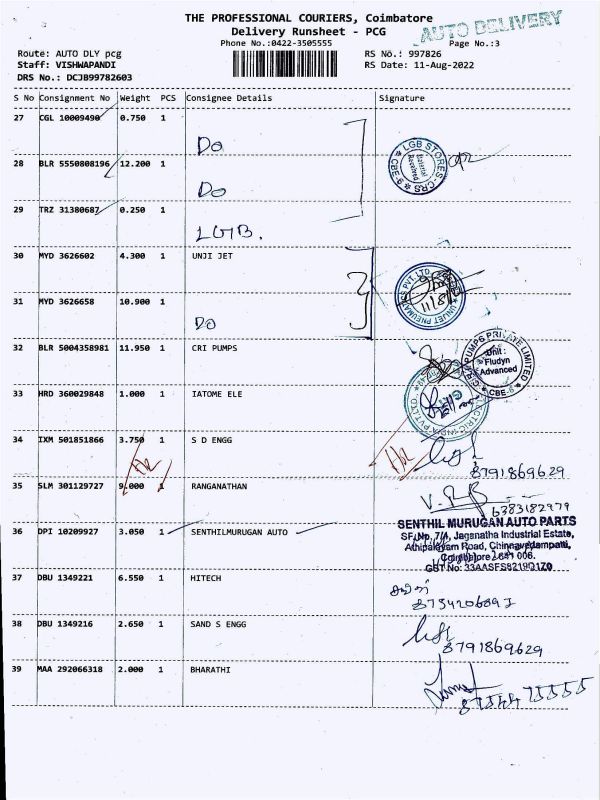 THE PROFESSIONAL COURIERS, Coimbatore
Delivery Runsheet - PCG
AUTO DELIVERY
Phone No.:0422-3505555
Page No.:3
Route: AUTO DLY pcg
RS No.: 997826
Staff: VISHWAPANDI
RS Date: 11-Aug-2022
DRS No.: DCJB99782603
S No Consignment No Weight PCS Consignee Details Signature
27 CGL 10009490 0.750 1
Do
LGB STORES-CRS CBE-9 Material Received
28 BLR 5550808196 12.200 1
Do
29 TRZ 31380687 0.250 1
LGB.
30 MYD 3626602 4.300 1 UNJI JET
UNIJET PNEUMATICS PVT. LTD.
11/8/
31 MYD 3626658 10.900 1
Do
32 BLR 5004358981 11.950 1 CRI PUMPS
PUMPS PRIVATE LIMITED CBE-6
Unit : Fludyn Advanced
33 HRD 360029848 1.000 1 IATOME ELE
ELECTRIC INDIA PVT.LTD.
34 IXM 501851866 3.750 1 S D ENGG
8791869629
35 SLM 301129727 9.000 1 RANGANATHAN
6383182979
36 DPI 10209927 3.050 1 SENTHILMURUGAN AUTO
SENTHIL MURUGAN AUTO PARTS
SF.No. 7/A, Jaganatha Industrial Estate,
Athipalayam Road, Chinnavedampatti,
Coimbatore - 641 006.
GST No: 33AASFS8219D1Z0
37 DBU 1349221 6.550 1 HITECH
38 DBU 1349216 2.650 1 SAND S ENGG
8791869629
39 MAA 292066318 2.000 1 BHARATHI